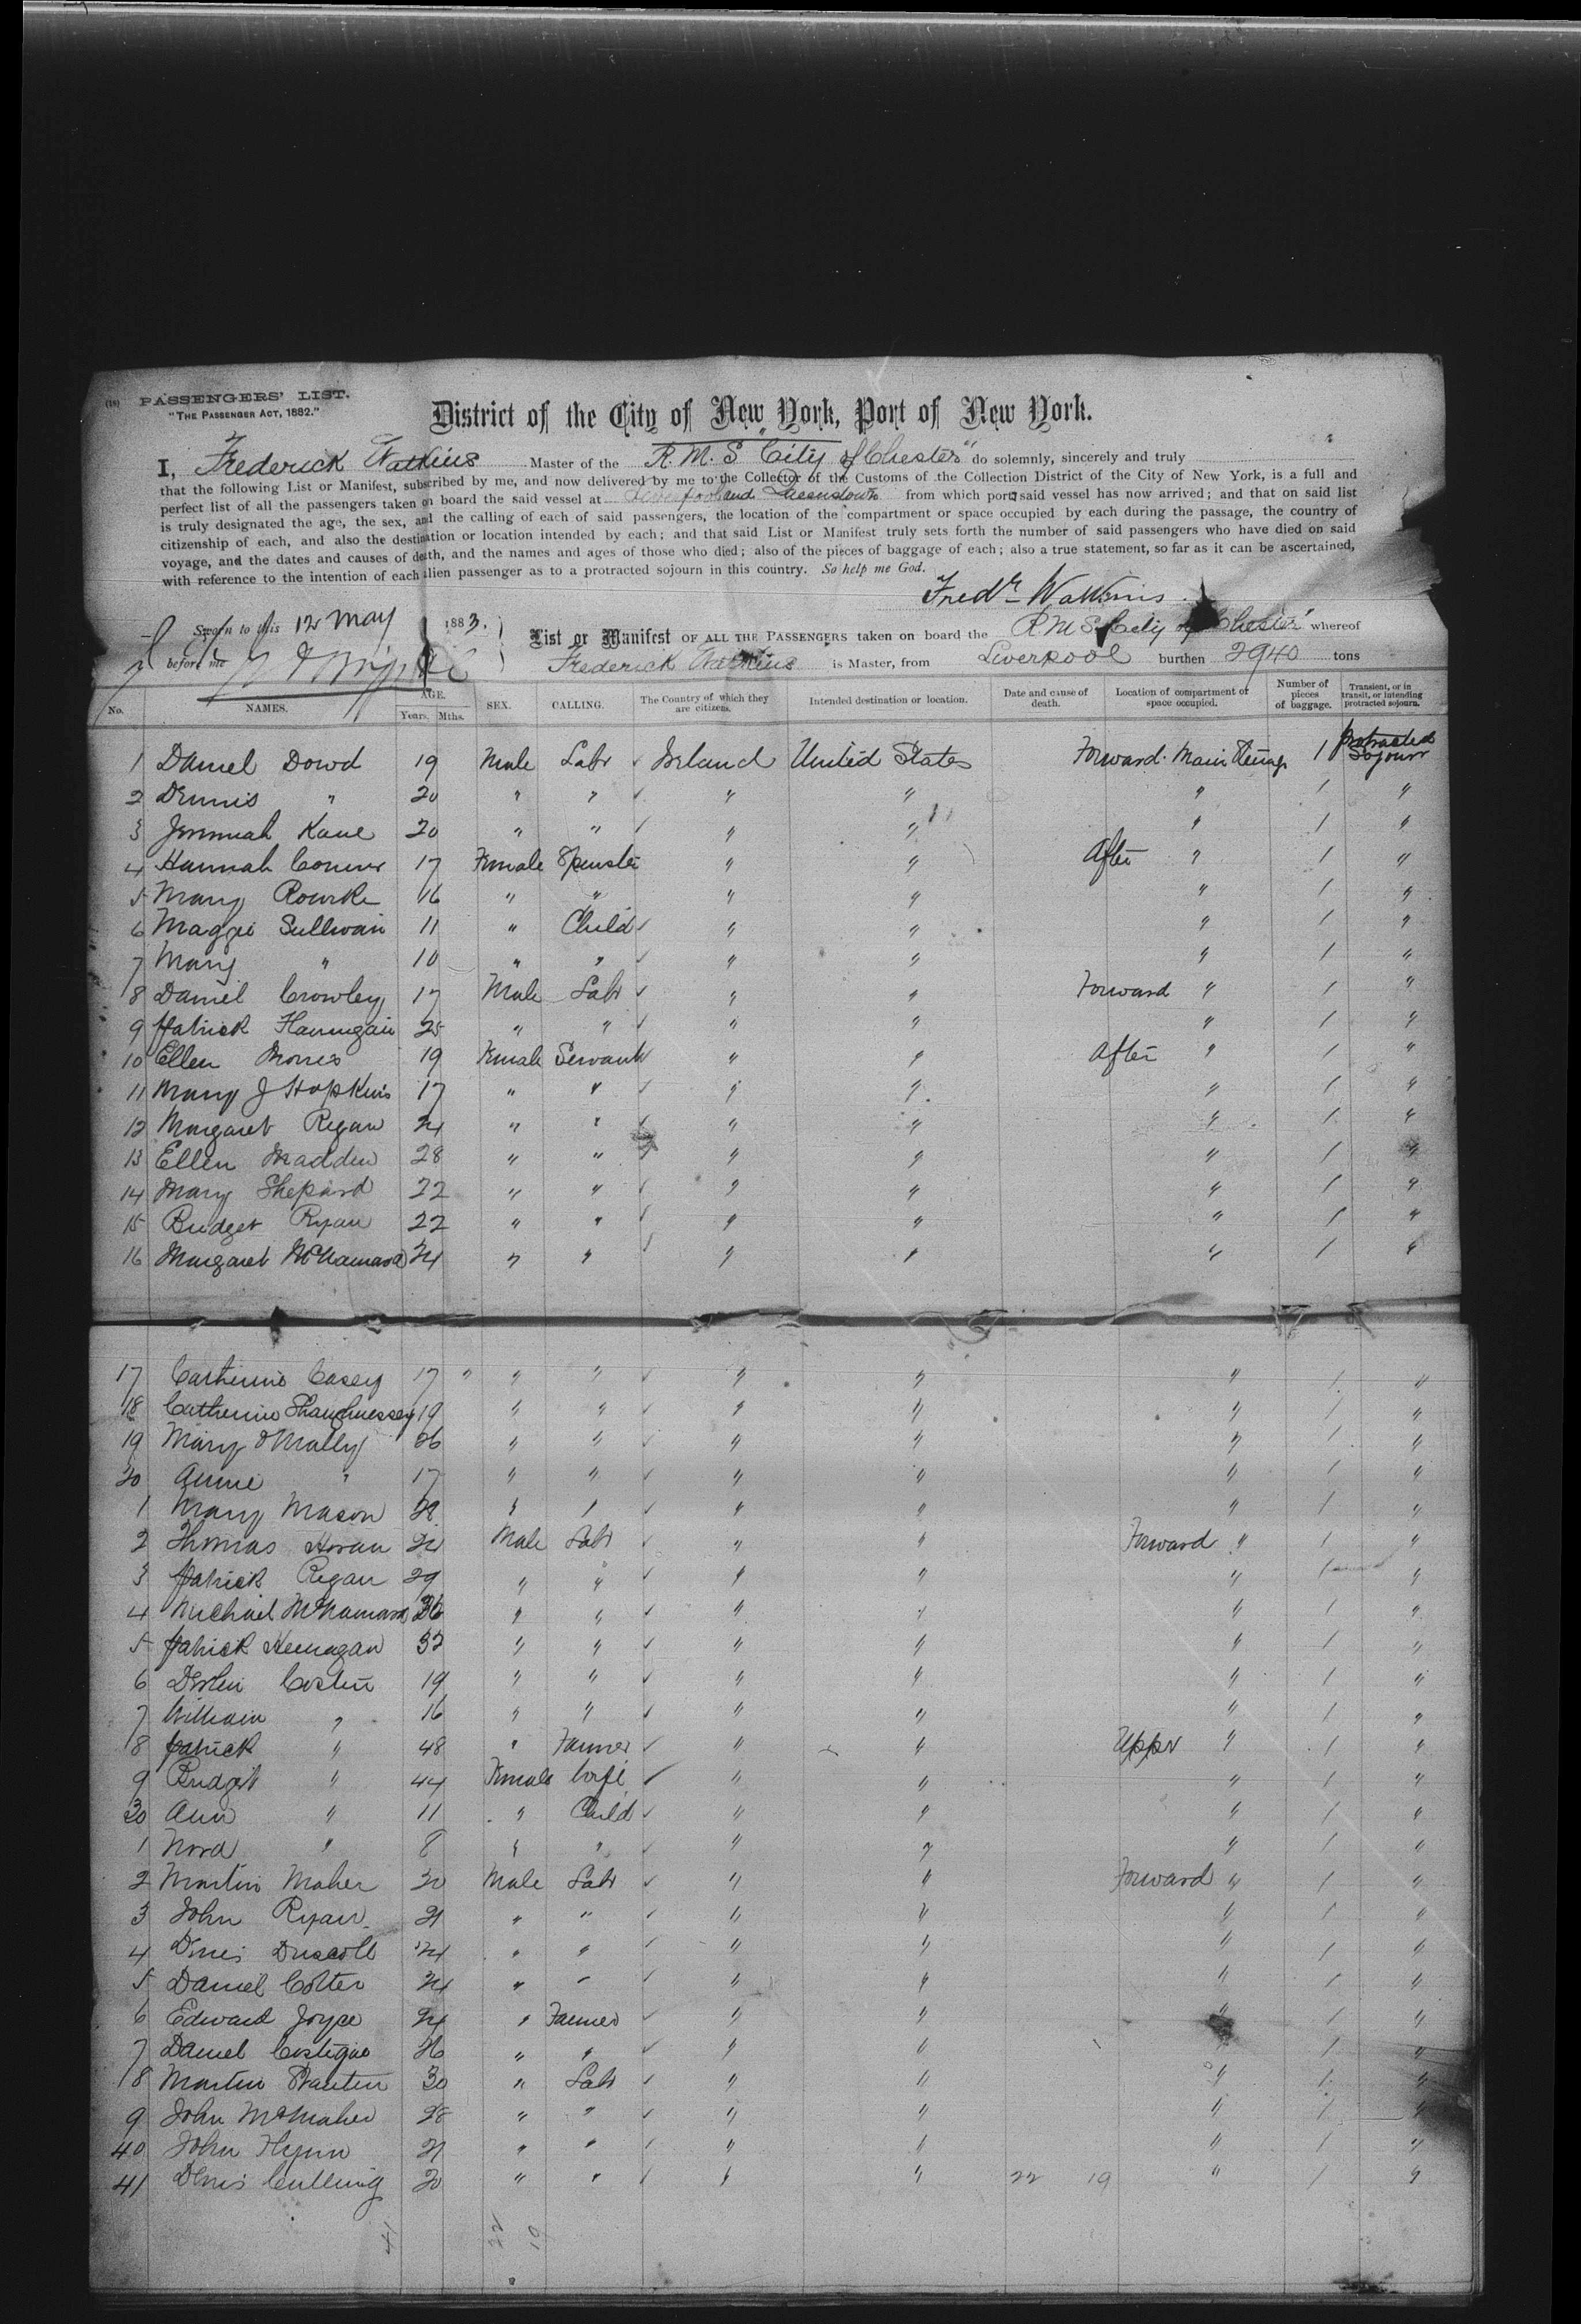 (18) PASSENGERS' LIST.
"THE PASSENGER ACT, 1882."
District of the City of New York, Port of New York.
I, Frederick Watkins Master of the R.M.S "City of Chester" do solemnly, sincerely and truly
that the following List or Manifest, subscribed by me, and now delivered by me to the Collector of the Customs of the Collection District of the City of New York, is a full and
perfect list of all the passengers taken on board the said vessel at Liverpool and Queenstown from which port said vessel has now arrived; and that on said list
is truly designated the age, the sex, and the calling of each of said passengers, the location of the compartment or space occupied by each during the passage, the country of
citizenship of each, and also the destination or location intended by each; and that said List or Manifest truly sets forth the number of said passengers who have died on said
voyage, and the dates and causes of death, and the names and ages of those who died; also of the pieces of baggage of each; also a true statement, so far as it can be ascertained,
with reference to the intention of each alien passenger as to a protracted sojourn in this country. So help me God.
Fredk Watkins
Sworn to this 12 May 1883.
before me
List or Manifest OF ALL THE PASSENGERS taken on board the R M S City of Chester whereof
Frederick Watkins is Master, from Liverpool burthen 2940 tons
No. NAMES. AGE. Years. Mths. SEX. CALLING. The Country of which they are citizens. Intended destination or location. Date and cause of death. Location of compartment or space occupied. Number of pieces of baggage. Transient, or in transit, or intending protracted sojourn.
1 Daniel Dowd 19 Male Labr Ireland United States Forward Main Steerage 1 Protracted Sojourn
2 Dennis " 20 " " " " " 1 "
3 Jeremiah Kane 20 " " " " " 1 "
4 Hannah Connor 17 Female Spinster " " After " 1 "
5 Mary Rourke 16 " " " " " 1 "
6 Maggie Sullivan 11 " Child " " " 1 "
7 Mary " 10 " " " " " 1 "
8 Daniel Crowley 17 Male Labr " " Forward " 1 "
9 Patrick Flannigan 25 " " " " " 1 "
10 Ellen Morris 19 Female Servant " " After " 1 "
11 Mary J Hopkins 17 " " " " " 1 "
12 Margaret Regan 24 " " " " " 1 "
13 Ellen Madden 28 " " " " " 1 "
14 Mary Shepard 22 " " " " " 1 "
15 Bridget Ryan 22 " " " " " 1 "
16 Margaret McNamara 24 " " " " " 1 "
17 Catherine Casey 17 " " " " " " 1 "
18 Catherine Shaughnessey 19 " " " " " 1 "
19 Mary O'Mally 26 " " " " " 1 "
20 Annie " 17 " " " " " 1 "
1 Mary Mason 28 " " " " " 1 "
2 Thomas Horan 24 Male Labr " " Forward " 1 "
3 Patrick Regan 29 " " " " " 1 "
4 Michael McNamara 26 " " " " " 1 "
5 Patrick Heenagan 32 " " " " " 1 "
6 19 " " " " " 1 "
7 William " 16 " " " " " 1 "
8 Patrick " 48 " Farmer " " Upper " 1 "
9 Bridget " 44 Female Wife " " " 1 "
30 Ann " 11 " Child " " " 1 "
1 Nora " 8 " " " " " 1 "
2 Martin Maher 20 Male Labr " " Forward " 1 "
3 John Ryan 21 " " " " " 1 "
4 Denis Driscoll 24 " " " " " 1 "
5 Daniel Cotter 24 " " " " " 1 "
6 Edward Joyce 24 " Farmer " " " 1 "
7 Daniel Costigan 26 " " " " " 1 "
8 Martin Stanton 30 " Labr " " " 1 "
9 John McMaher 28 " " " " " 1 "
40 John Flynn 21 " " " " " 1 "
41 Denis Culling 20 " " " " 22 19 " 1 "
41 22 19